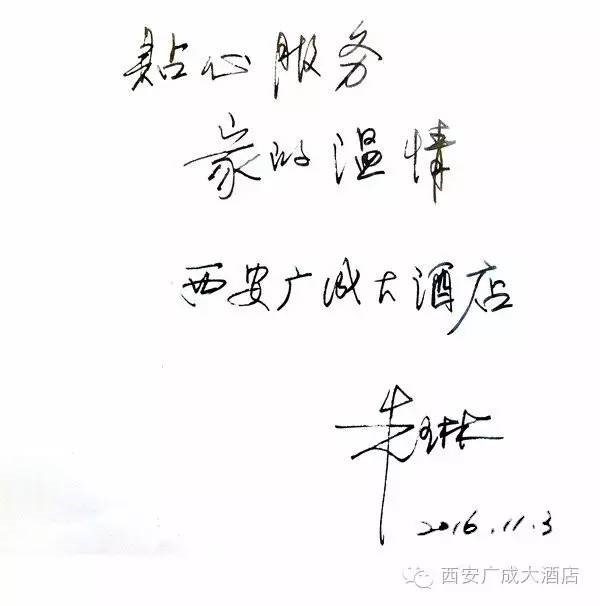 贴心服务
家的温情
西安广成大酒店
朱琳
2016.11.3
西安广成大酒店